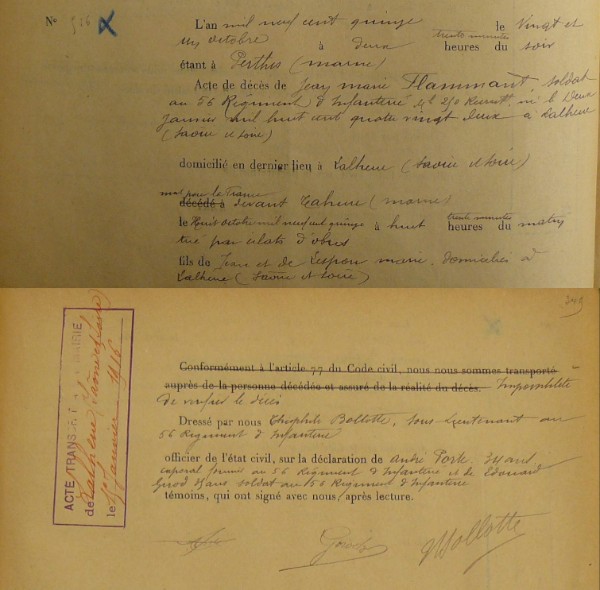 No 526
L'an mil neuf cent quinze le vingt et
un octobre à deux heures trente minutes du soir
étant à Perthes (marne)
Acte de décès de Jean marie Flammant, soldat
au 56 Regiment d'Infanterie, né le deux
janvier mil huit cent quatre vingt deux à Lalheue
(Saone et Loire)
domicilié en dernier lieu à Lalheue (Saone et Loire)
mort pour la France
décédé à devant Tahure (marne)
le huit octobre mil neuf cent quinze à huit heures trente minutes du matin
tué par éclats d'obus
fils de Jean et de marie, domiciliés à
Lalheue (Saone et Loire)
Conformément à l'article 77 du Code civil, nous nous sommes transporté
auprès de la personne décédée et assuré de la réalité du décès. Impossibilité
de verifier le décès
Dressé par nous Théophile Bollotte, sous Lieutenant au
56 Regiment d'Infanterie
officier de l'état civil, sur la déclaration de André Porte, ans
caporal au 56 Regiment d'Infanterie et de Edouard
ans soldat au 56 Regiment d'Infanterie
témoins, qui ont signé avec nous après lecture.
Bollotte
ACTE TRANSCRIT MAIRIE
de Lalheue (Saone et Loire)
le Janvier 1916